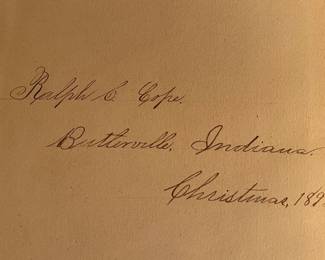 Ralph C Cope.
Butlerville. Indiana.
Christmas, 189